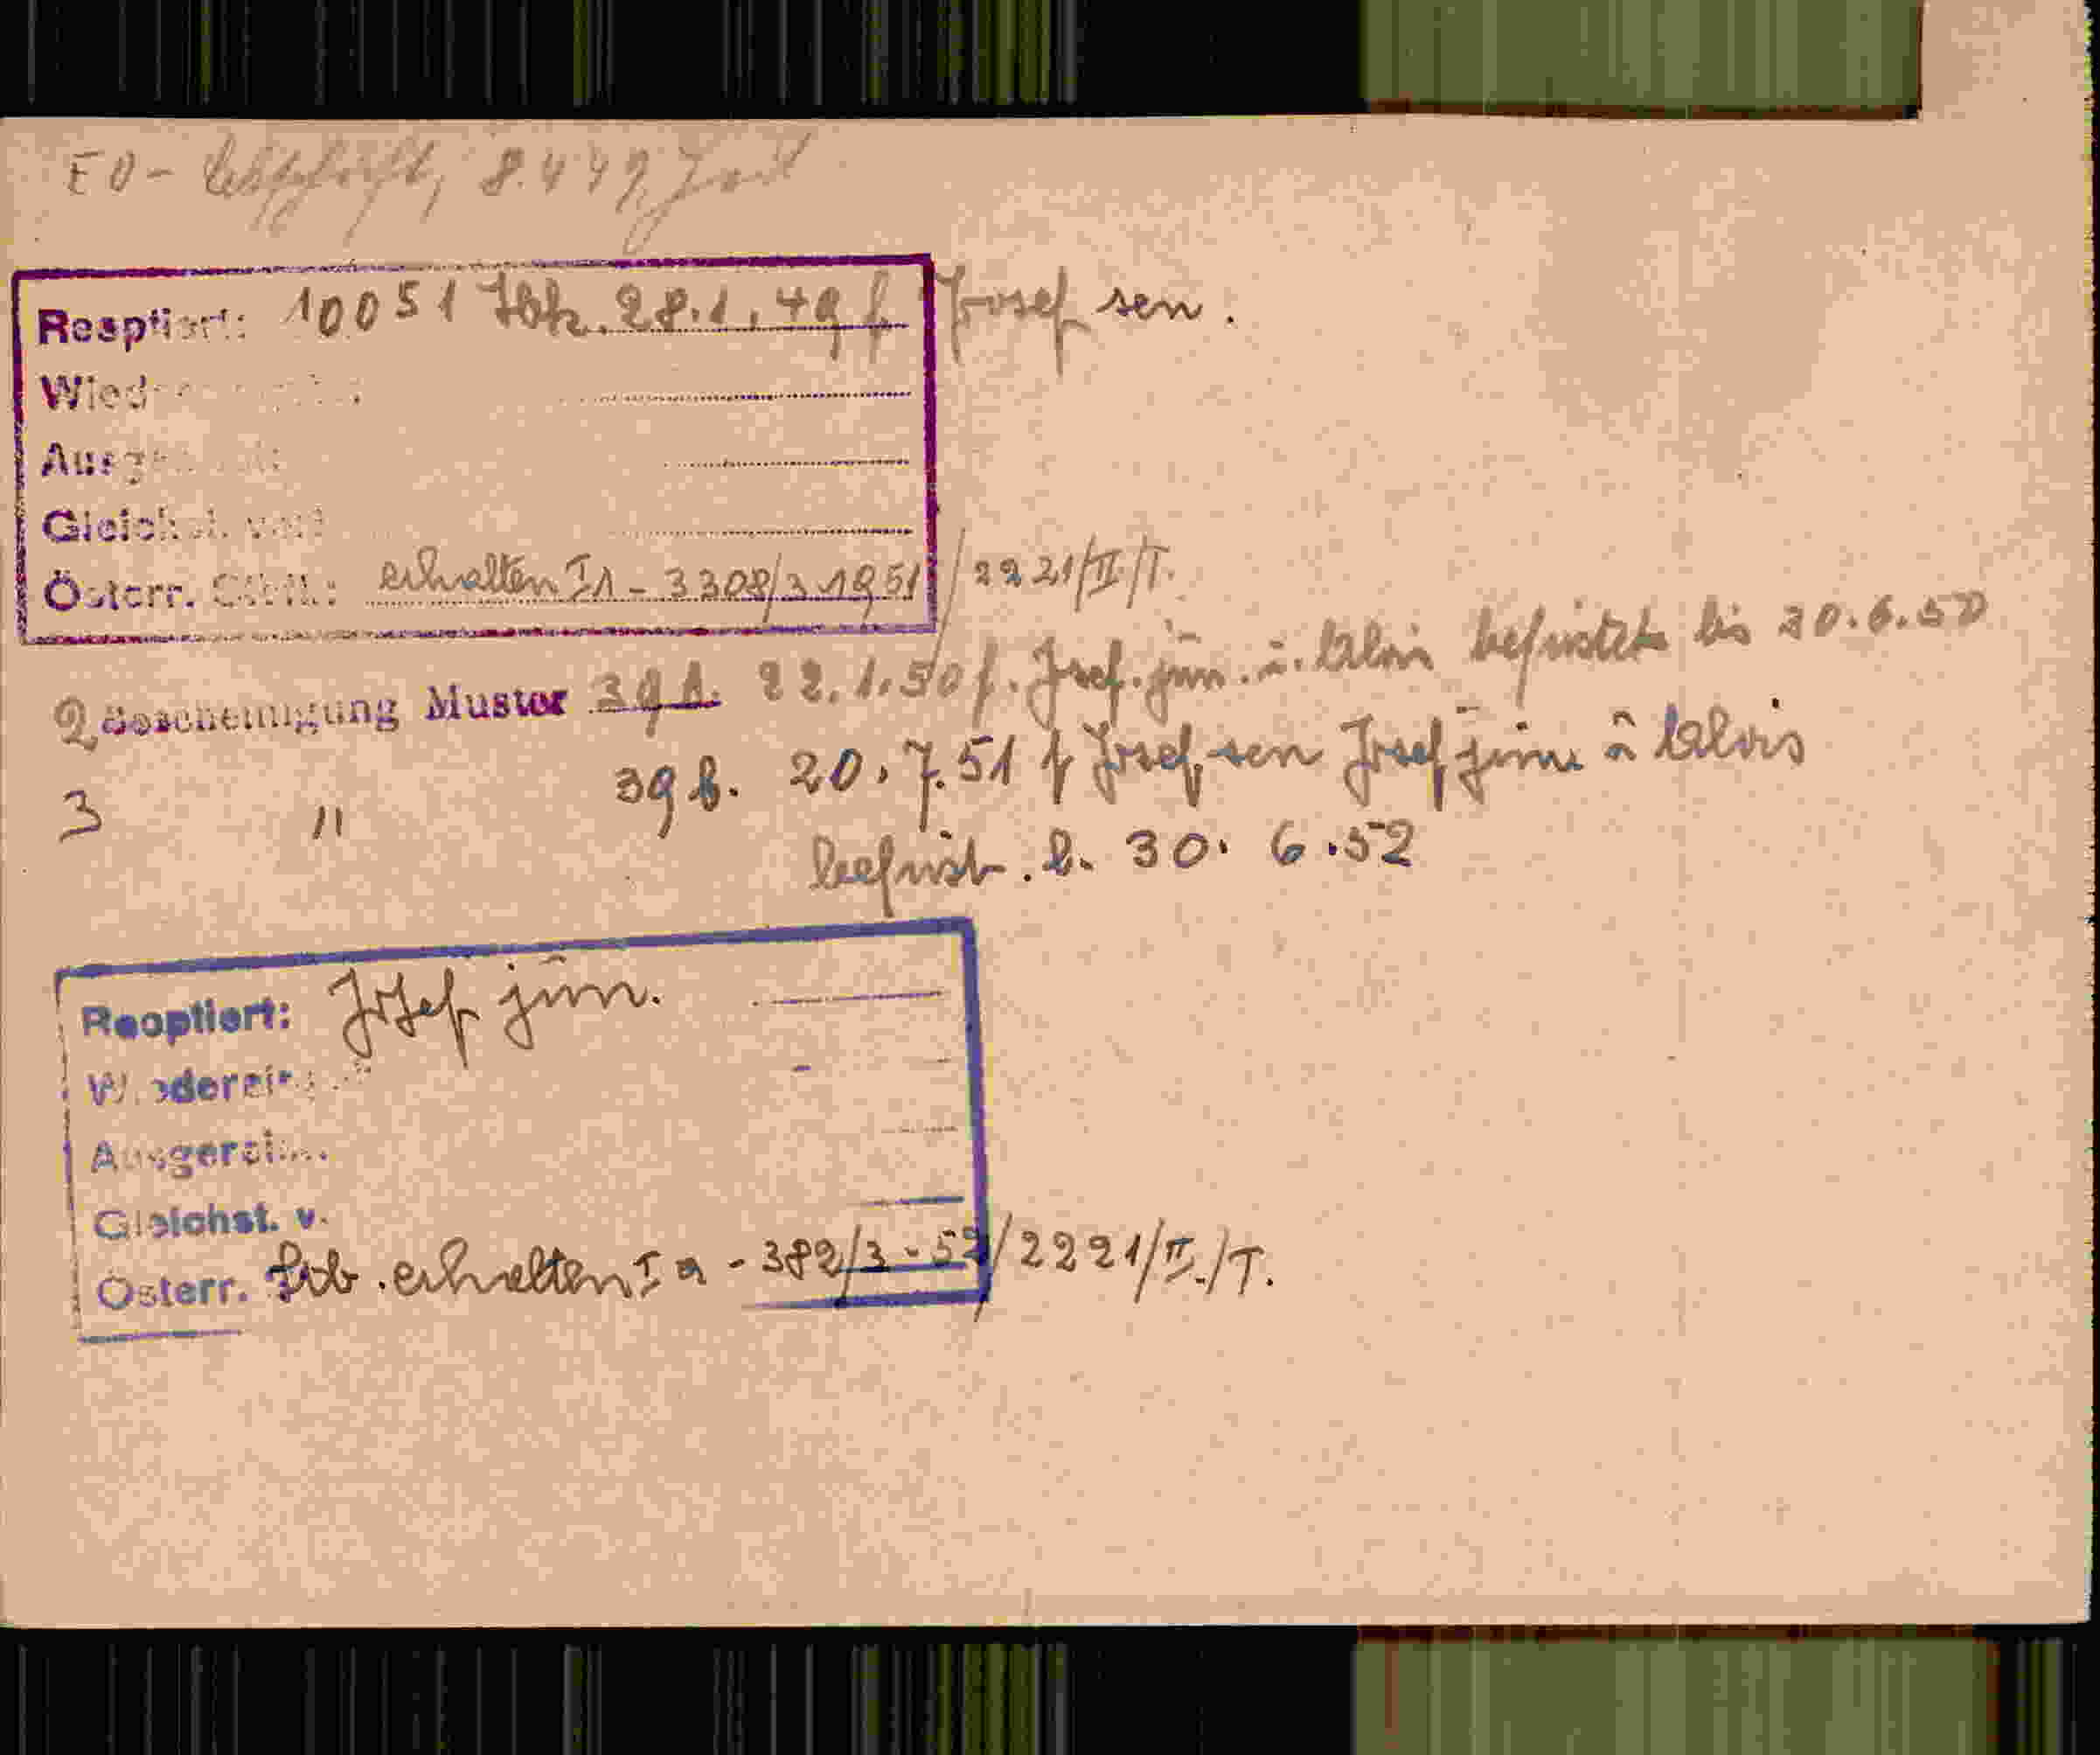 E O - 8.449
Reoptiert: 10051 Ibk. 28.1.49 f Josef sen.
Österr. Stbsch.: erhalten I1 - 3308/3 1951 / 2221/II/T.
2 Bescheinigung Muster 39 b. 22.1.50 f. Josef jün. ü. Alois befristet bis 30.6.50
3 " 39 b. 20.7.51 f Josef sen Josef jün ü Alois
befrist. b. 30. 6.52
Reoptiert: Josef jün.
Ausgereist:
Gleichst. v.
Österr. Stb. erhalten I a - 382/3 - 52/2221/II./T.